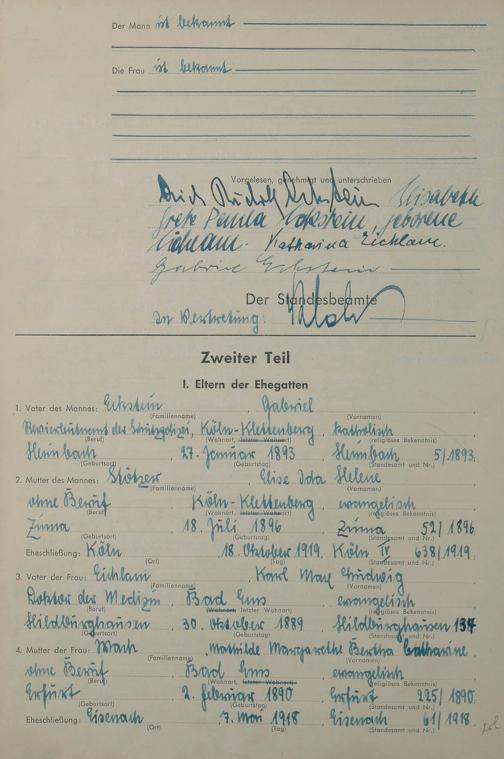 Der Mann ist bekannt
Die Frau ist bekannt
Vorgelesen, genehmigt und unterschrieben
Rudolf Eckstein Elisabeth
Grete Paula Eckstein, geborene
Eichlam. Katharina Eichlam.
Gabriel Eckstein
Der Standesbeamte
In Vertretung:
Zweiter Teil
I. Eltern der Ehegatten
1. Vater des Mannes: Eckstein, Gabriel
(Familienname) (Vornamen)
Revierleutnant der Schutzpolizei, Köln-Klettenberg, katholisch
(Beruf) (Wohnort, letzter Wohnort) (religiöses Bekenntnis)
Heimbach, 27. Januar 1893, Heimbach 5/1893.
(Geburtsort) (Geburtstag) (Standesamt und Nr.)
2. Mutter des Mannes: Stötzer, Elise Ida Helene
(Familienname) (Vornamen)
ohne Beruf, Köln-Klettenberg, evangelisch
(Beruf) (Wohnort, letzter Wohnort) (religiöses Bekenntnis)
18. Juli 1896, 52/1896.
(Geburtsort) (Geburtstag) (Standesamt und Nr.)
Eheschließung: Köln, 18. Oktober 1919. Köln IV 638/1919.
(Ort) (Tag) (Standesamt und Nr.)
3. Vater der Frau: Eichlam, Karl Max Ludwig
(Familienname) (Vornamen)
Doktor der Medizin, Bad Ems, evangelisch
(Beruf) (Wohnort, letzter Wohnort) (religiöses Bekenntnis)
Hildburghausen, 30. Oktober 1889, Hildburghausen 134
(Geburtsort) (Geburtstag) (Standesamt und Nr.)
4. Mutter der Frau: Mathilde Margarethe Bertha Catharine.
(Familienname) (Vornamen)
ohne Beruf, Bad Ems, evangelisch
(Beruf) (Wohnort, letzter Wohnort) (religiöses Bekenntnis)
Erfurt, 2. Februar 1890, Erfurt 225/1890.
(Geburtsort) (Geburtstag) (Standesamt und Nr.)
Eheschließung: Eisenach, 7. Mai 1918, Eisenach 61/1918.
(Ort) (Tag) (Standesamt und Nr.)